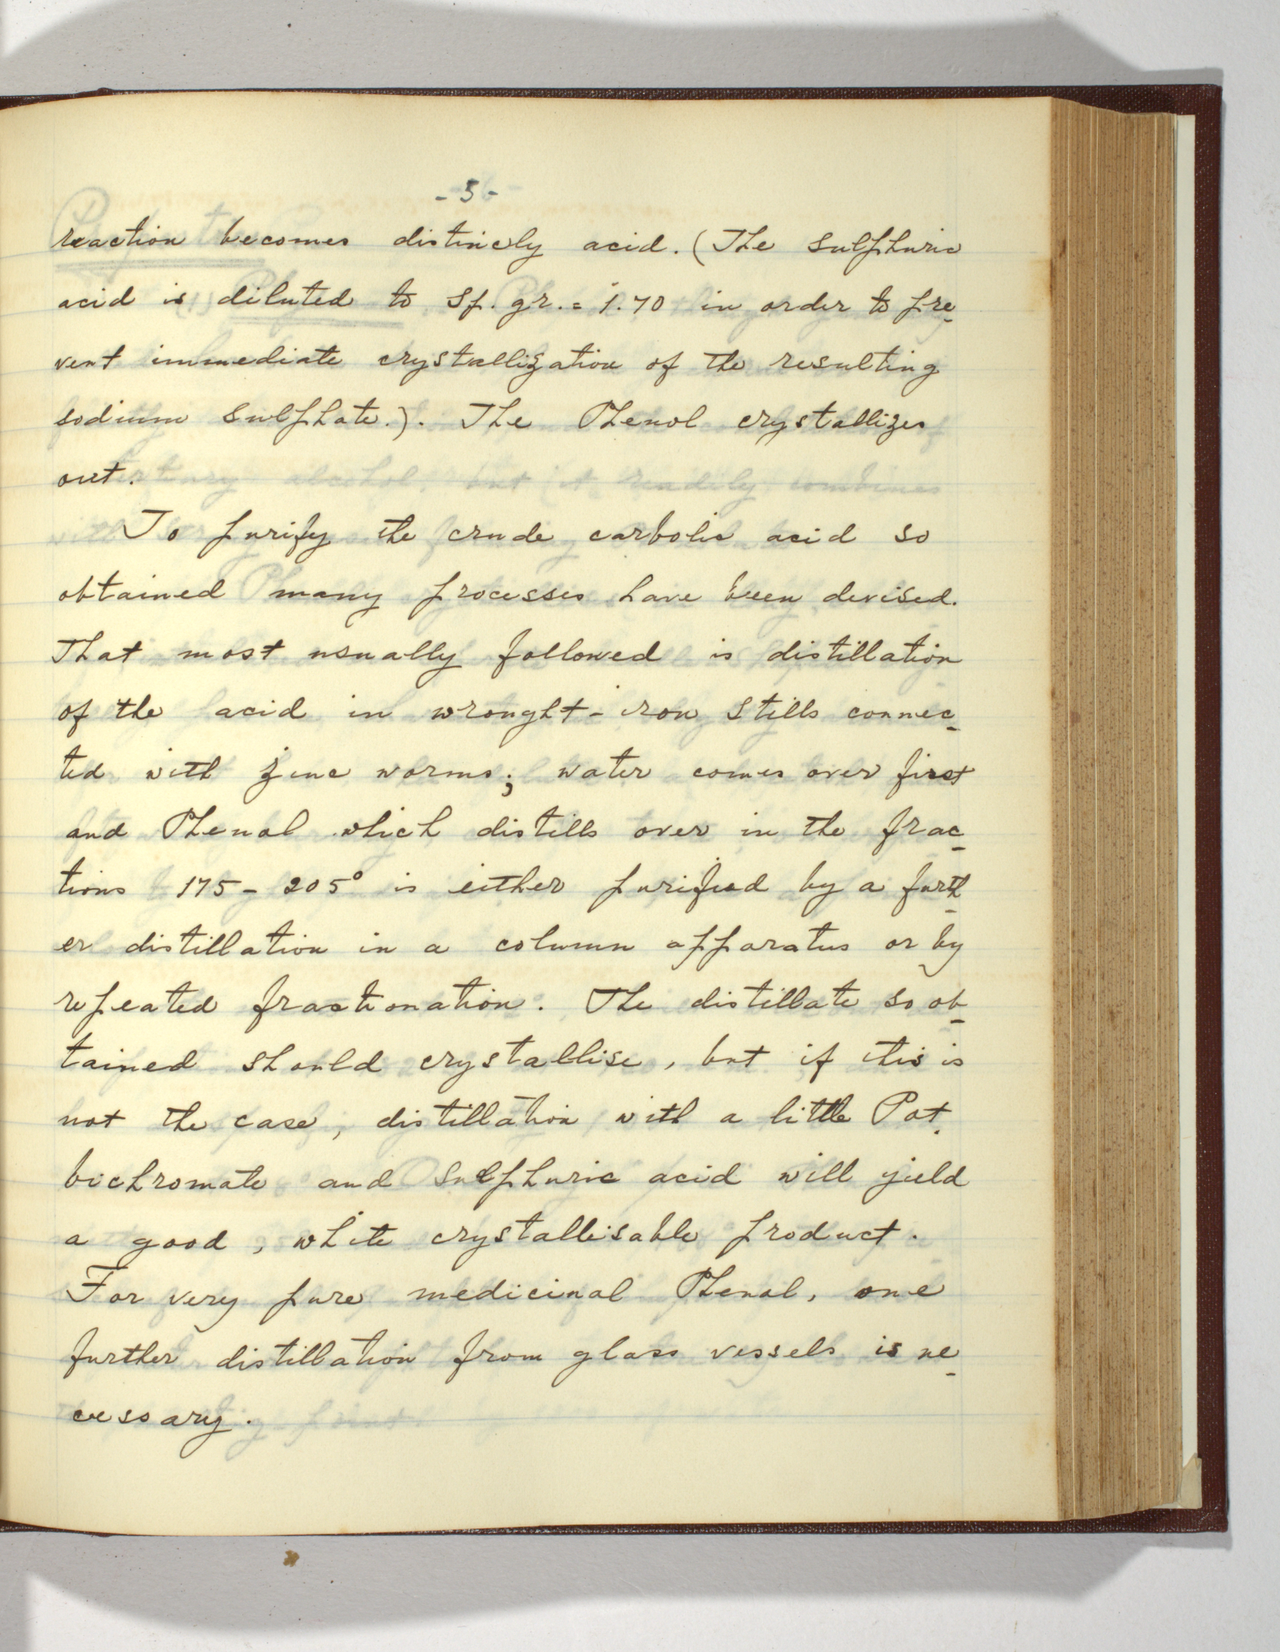 - 5 -
reaction becomes distincly acid. (The sulphuric
acid is diluted to sp. gr. = 1.70 in order to pre-
vent immediate crystallization of the resulting
sodium sulphate.). The Phenol crystallizes
out.
To purify the crude carbolic acid so
obtained many processes have been devised.
That most usually followed is distillation
of the acid in wrought-iron stills connec-
ted with zinc worms; water comes over first
and Phenol which distills over in the frac-
tions 175 - 205° is either purified by a furth-
er distillation in a column apparatus or by
repeated fractionation. The distillate so ob-
tained should crystallise, but if this is
not the case, distillation with a little Pot.
bichromate and sulphuric acid will yield
a good, white crystallisable product.
For very pure medicinal Phenol, one
further distillation from glass vessels is ne-
cessary.